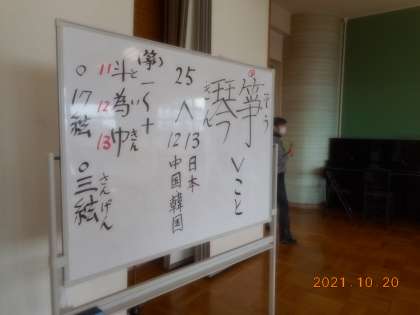 箏 そう
琴 きん
＞こと
25
へ
12 13
日本
中国韓国
(箏)
一〜十
11 斗 と
12 為 い
13 巾 きん
○17絃
○三絃 さんげん
2021.10.20